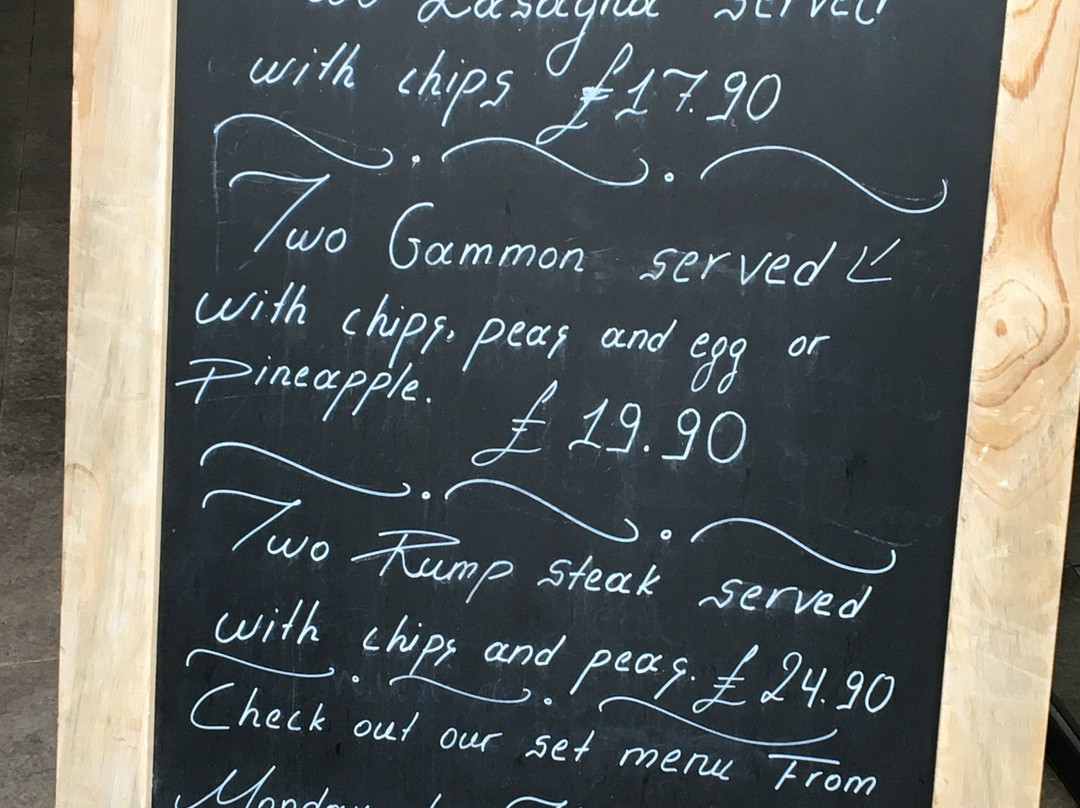 Two Lasagna served
with chips £17.90
Two Gammon served
with chips, peas and egg or
Pineapple.
£19.90
Two Rump steak served
with chips and peas. £24.90
Check out our set menu From
Monday